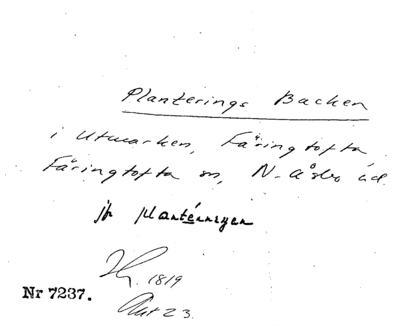 Planterings Backen
i Utmarken, Fåringtofta
Fåringtofta sn, N. Åsbo hd.
jfr planteringen
1819
Akt 23.
Nr 7237.